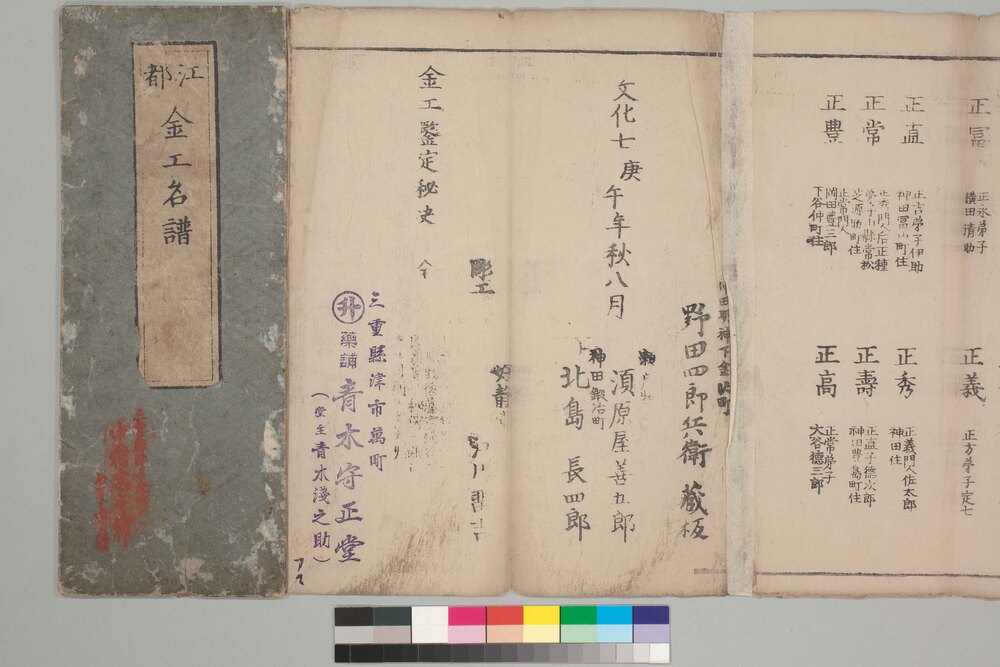 江都
金工名譜
正冨
正永弟子
横田清助
正義
正方弟子定七
正直
正吉弟子伊助
神田冨山町住
正秀
正義門人佐太郎
神田住
正常
正秀門人后正種
芝源助町住
正壽
正直子德次郎
神田豊島町住
正豊
正常門人
岡田豊三郎
下谷仲町住
正高
正常弟子
大谷德三郎
野田四郎兵衛 蔵板
文化七庚午年秋八月
須原屋善五郎
神田鍛冶町
北島 長四郎
彫工
金工鑒定秘史 仝
三重縣津市萬町
升 藥舗 青木守正堂
（堂主青木淺之助）